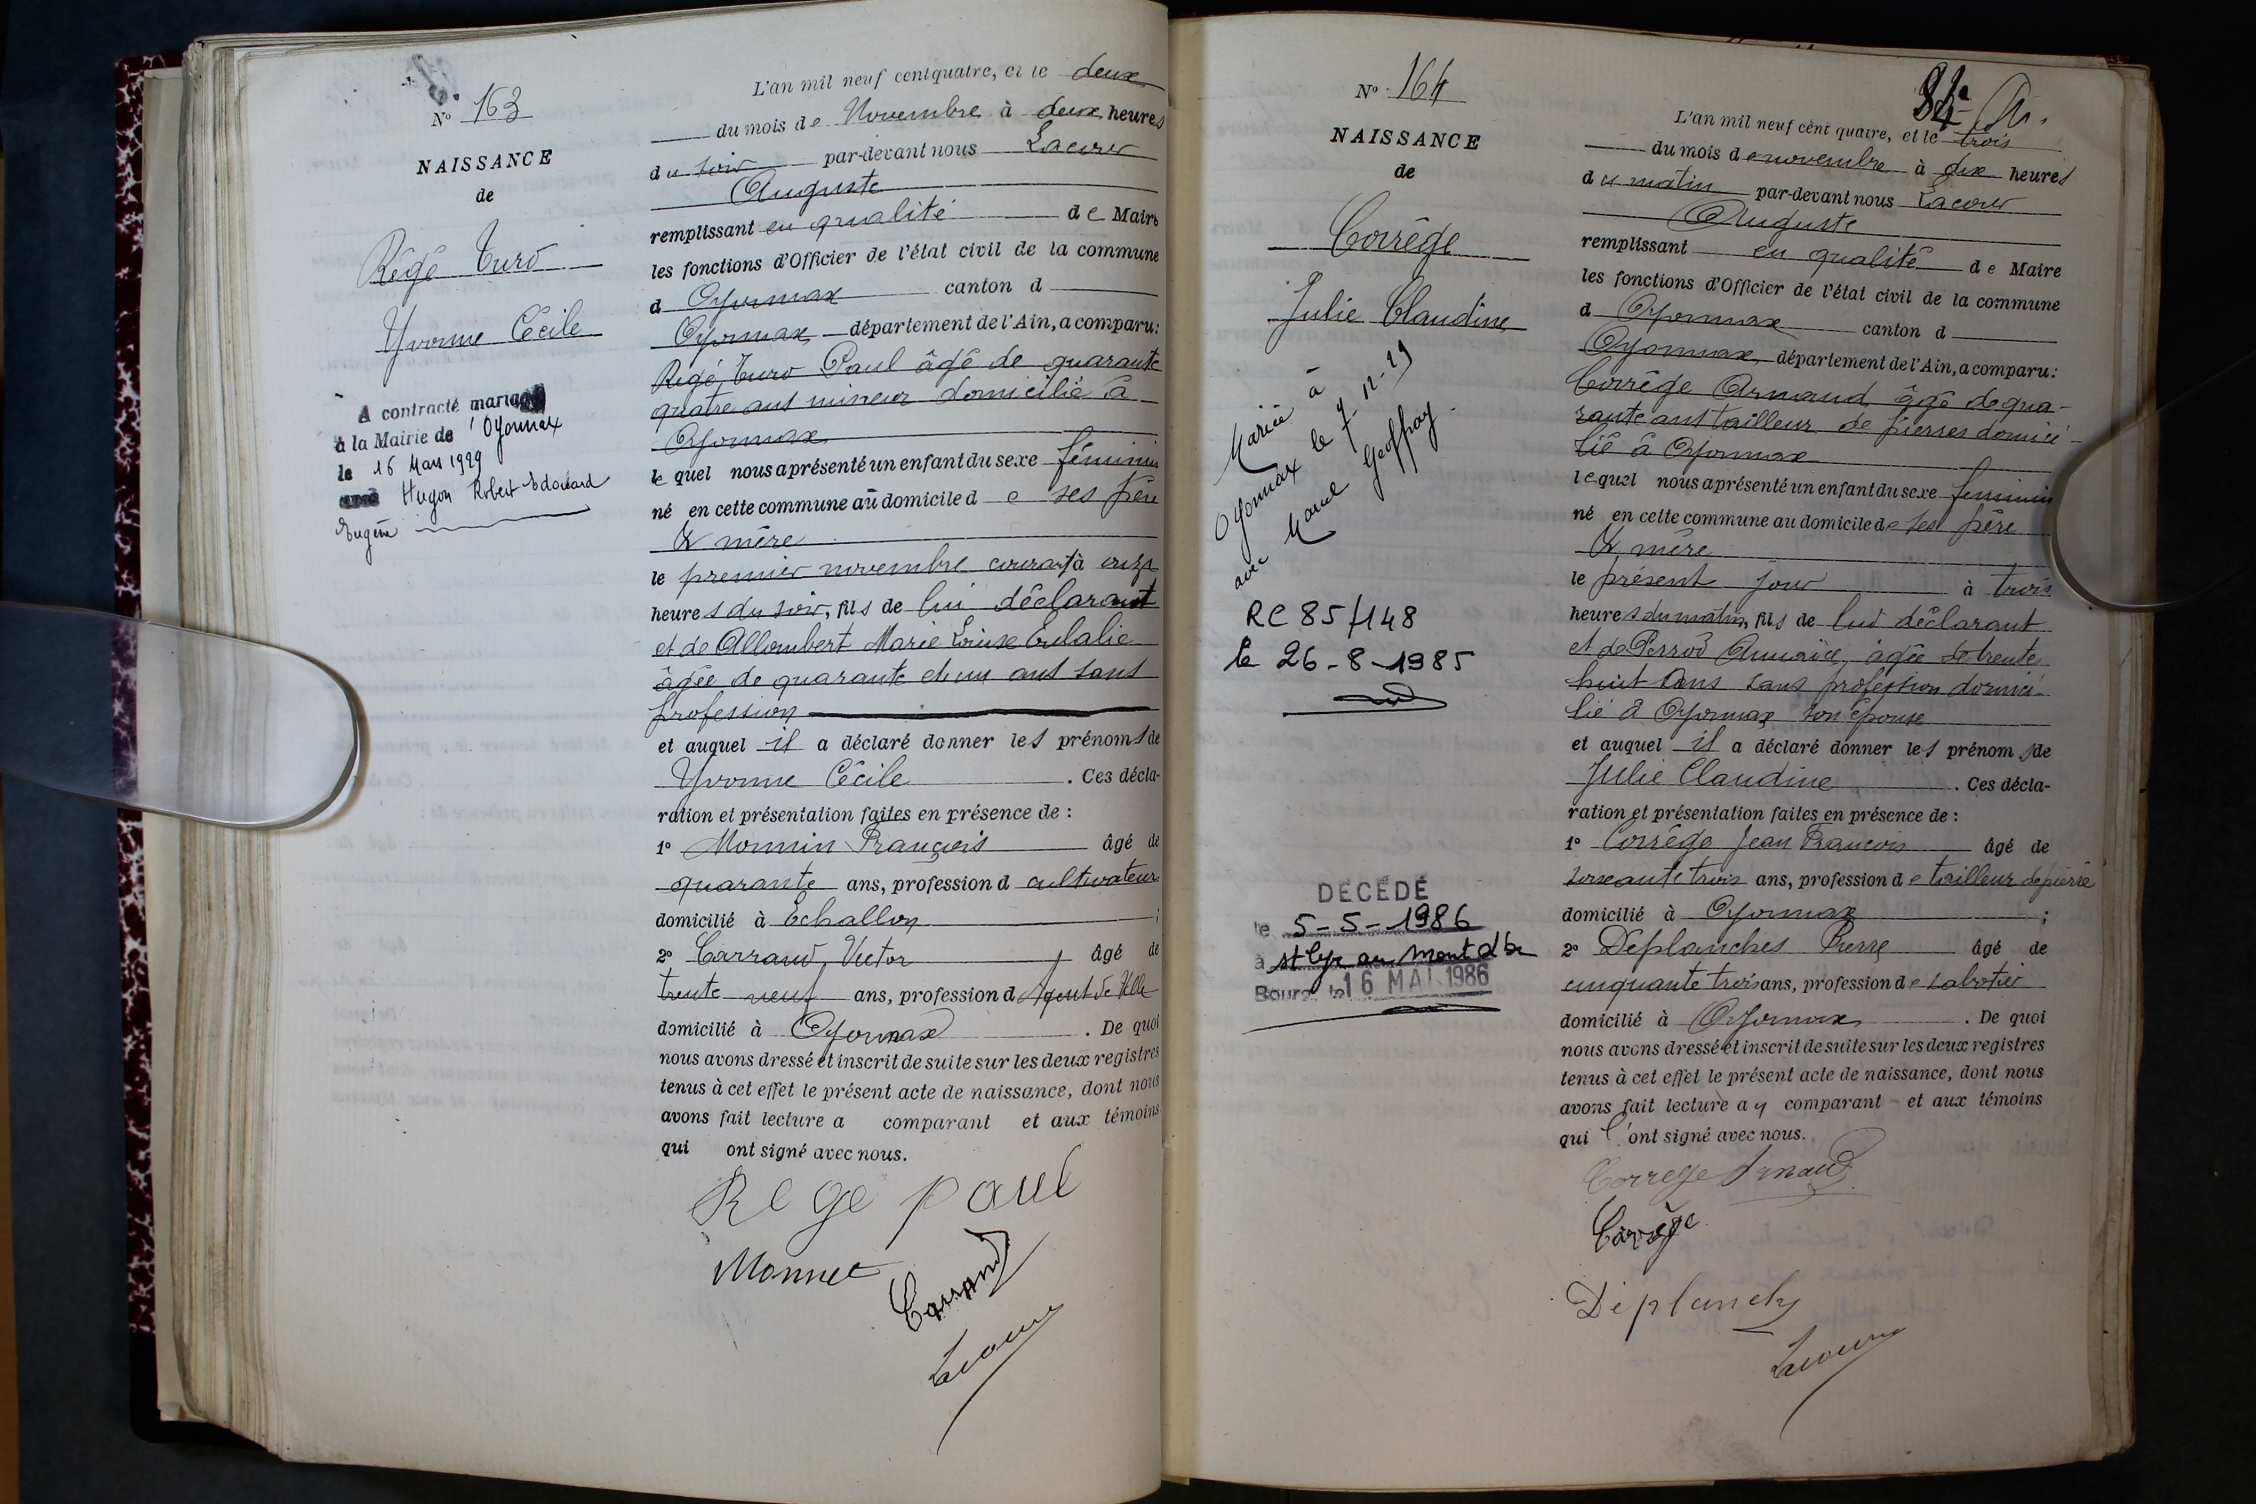 N° 163
NAISSANCE
de
Régé Turo
Yvonne Cécile
A contracté mariage
à la Mairie de Oyonnax
le 16 Mars 1929
Hugon Robert Edouard
Eugène
L'an mil neuf cent quatre, et le deux
du mois de Novembre à deux heures
du soir par-devant nous Lacour
Auguste
remplissant en qualité de Maire
les fonctions d'Officier de l'état civil de la commune
d Oyonnax canton d
Oyonnax département de l'Ain, a comparu:
Régé Turo Paul âgé de quarante
quatre ans mineur domicilié à
Oyonnax
le quel nous a présenté un enfant du sexe féminin
né en cette commune au domicile de ses père
& mère
le premier novembre courant à onze
heures du soir, fils de lui déclarant
et de Allombert Marie Louise Eulalie
âgée de quarante et un ans sans
profession
et auquel il a déclaré donner les prénoms de
Yvonne Cécile . Ces décla-
ration et présentation faites en présence de :
1° Monnin François âgé de
quarante ans, profession d cultivateur
domicilié à Echallon ;
2° Carraud Victor âgé de
trente neuf ans, profession d Agent de Ville
domicilié à Oyonnax . De quoi
nous avons dressé et inscrit de suite sur les deux registres
tenus à cet effet le présent acte de naissance, dont nous
avons fait lecture a comparant et aux témoins
qui ont signé avec nous.
Rege paul
Monnet
Carraud
Lacour
N° 164
NAISSANCE
de
Corrége
Julie Claudine
Mariée à
Oyonnax le 7-12-29
avec Marcel Geoffray.
RC 85/148
le 26-8-1985
DÉCÉDÉ
le 5-5-1986
à st Cyr au Mont d'Or
Bourg, le 16 MAI 1986
84e
L'an mil neuf cent quatre, et le trois
du mois de novembre à dix heures
du matin par-devant nous Lacour
Auguste
remplissant en qualité de Maire
les fonctions d'Officier de l'état civil de la commune
d Oyonnax canton d
Oyonnax, département de l'Ain, a comparu:
Corrége Armand, âgé de qua-
rante ans tailleur de pierres domici-
lié à Oyonnax
lequel nous a présenté un enfant du sexe feminin
né en cette commune au domicile de ses père
& mère
le présent jour à trois
heures du matin, fils de lui déclarant
et de Perrod Amarice, âgée de trente
huit ans sans profession domici-
lié à Oyonnax son épouse
et auquel il a déclaré donner les prénoms de
Julie Claudine . Ces décla-
ration et présentation faites en présence de :
1° Corrége Jean François âgé de
soixante trois ans, profession de tailleur de pierre
domicilié à Oyonnax ;
2° Déplanches Pierre âgé de
cinquante trois ans, profession de sabotier
domicilié à Oyonnax . De quoi
nous avons dressé et inscrit de suite sur les deux registres
tenus à cet effet le présent acte de naissance, dont nous
avons fait lecture au comparant et aux témoins
qui l'ont signé avec nous.
Correge Arnaud
Corrège
Déplanche
Lacour